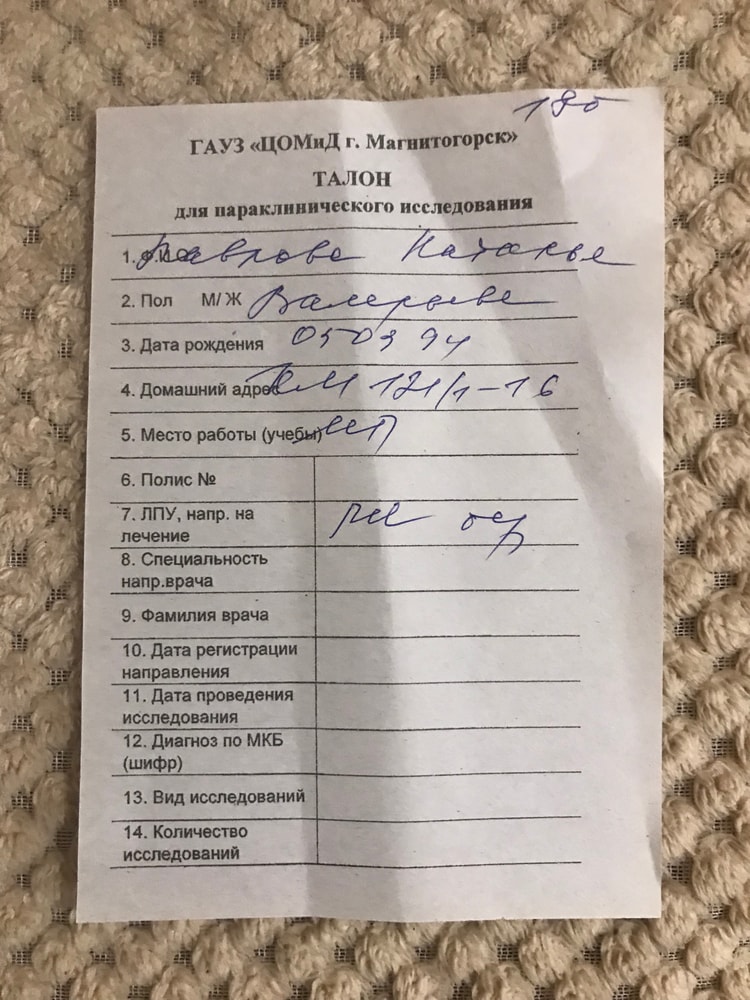 195
ГАУЗ «ЦОМиД г. Магнитогорск»
ТАЛОН
для параклинического исследования
1. Ф.И.О. Лаврова Наталья
2. Пол М/Ж Валерьевна
3. Дата рождения 050394
4. Домашний адрес КМ 121/1-16
5. Место работы (учебы)
6. Полис №
7. ЛПУ, напр. на
лечение
8. Специальность
напр.врача
9. Фамилия врача
10. Дата регистрации
направления
11. Дата проведения
исследования
12. Диагноз по МКБ
(шифр)
13. Вид исследований
14. Количество
исследований